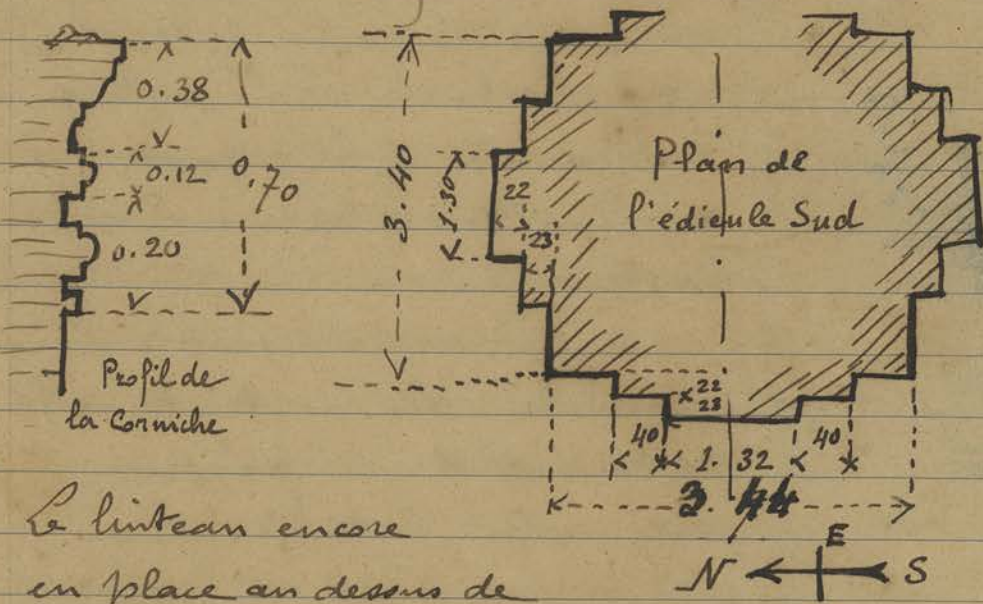 0.38
0.12
0.70
0.20
Profil de
la Corniche
3.40
1.30
22
23
Plan de
l'édicule Sud
22
23
40
1.32
40
3.44
E
N
S
Le linteau encore
en place au dessus de